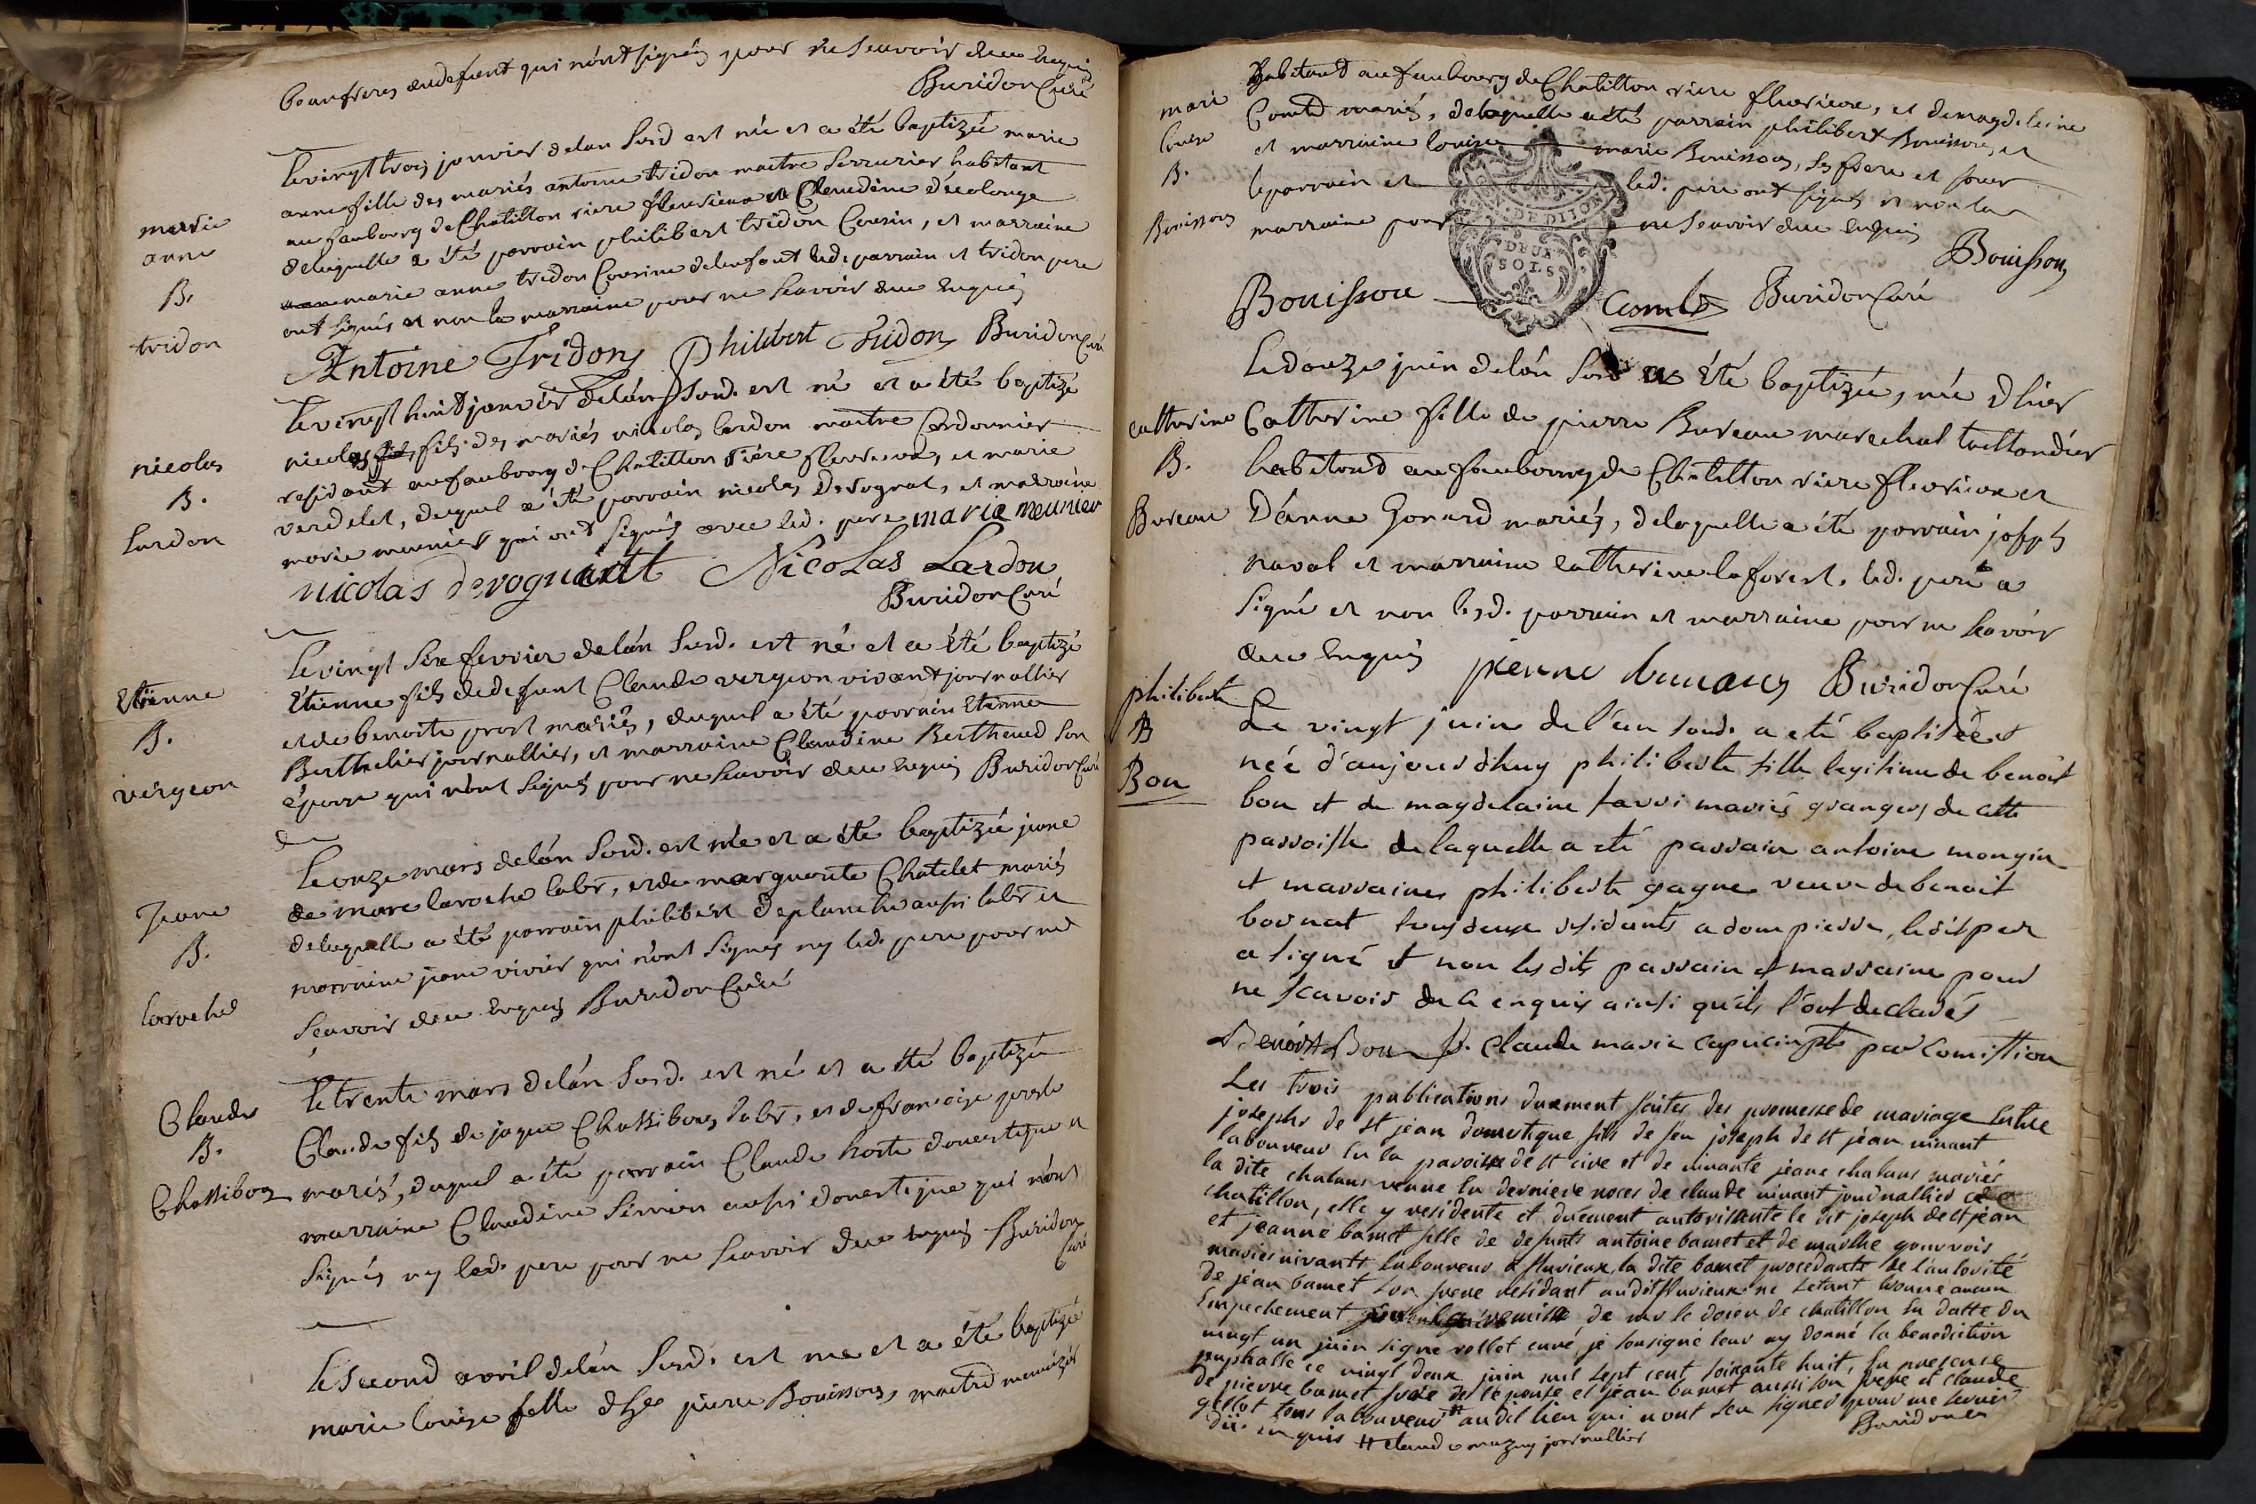 beaufreres dudefunt qui n'ont signés pour ne scavoir duee enquis
Buridon Curé
Le vingt trois janvier de l'an susd est née et a été baptizée marie
anne fille des mariés antoine tridon maitre serrurier habitant
au faubourg de Chatillon riere fleurieux et Claudine décolonge
delaquelle a été parrain philibert tridon Cousin, et marraine
marie anne tridon Cousine delenfant led. parrain et tridon pere
ont signés et non la marraine pour ne scavoir duee enquis
marie
anne
B.
tridon
Antoine Tridon Philibert Tridon Buridon Curé
Le vingt huit janvier de l'an susd. est né et a été baptizé
nicolas fils des mariés nicolas lardon maitre Cordonnier
residant au faubourg de Chatillon riére fleurieux, et marie
verdelet, duquel a été parrain nicolas Devognat, et marraine
marie meunier qui ont signés avec led. pere marie meunier
nicolas
B.
Lardon
nicolas devoguat Nicolas Lardon
Buridon Curé
Le vingt six fevrier de lán susd. est né et a été baptizé
Etienne fils dedefunt Claude vergeon vivant journallier
et de benoite prost mariés, duquel a été parrain Etienne
Berthelier journallier, et marraine Claudine Berthaud son
épouse qui n'ont signés pour ne scavoir duee enquis Buridon Curé
Etienne
B.
vergeon
Le onze mars de lán susd. est née et a été baptizée jeane
de marc laroche labr, et de marguerite Chatelet mariés
delaquelle a été parrain philibert deplanche aussi labr et
marraine jeane vivier qui n'ont signés ny led. pere pour ne
scavoir duee enquis Buridon Curé
Jeane
B.
laroche
Le trente mars de lán susd. est né et a été baptizée
Claude fils de jaque Chassiboux labr, et de françoise
mariés, duquel a été parrain Claude hoste domestique et
marraine Claudine Simon aussi domestique qui n'ont
signés ny led. pere pour ne scavoir duee enquis Buridon
Curé
Claude
B.
Chassiboux
Le second avril de lán susd. est née et a été baptizée
marie louise fille de pierre Bouissoux, maitre menuizier
habitant au faubourg de Chatillon riere fleurieux, et de magdeleine
Comte mariés, delaquelle a été parrain philibert Bouissoux et
et marraine louise marie Bouissoux, ses frere et soeur
le parrain et led. pere ont signés et non la
marraine pour ne scavoir duee enquis
marie
louise
B.
Bouissoux
DE DIJON
DEUX
SOLS
Bouissou
Bouissou Comte Buridon Curé
Le douze juin de lán susd a été baptizée, née d'hier
Catherine fille de pierre Bureau marechal taillandier
habitant au faubourg de Chatillon riere fleurieux et
D'anne Gonard mariés, delaquelle a été parrain joseph
naval et marraine catherine laforest. led. pere a
signé et non lesd. parrain et marraine pour ne scavoir
duee enquis pierre bureaus Buridon Curé
catherine
B.
Bureau
Le vingt juin de l'an susd. a eté baptisée et
née d'aujourdhuy philiberte fille legitime de benoit
bon et de magdelaine favvi mariés grangers de cette
parroisse de laquelle a eté parrain antoine mongin
et marraine philiberte gagne veuve de benoit
bornat tous deux residants a dompierre, ledit pere
a signé et non les dits parrain et marraine pour
ne scavoir de ce enquis ainsi qu'ils l'ont declarés
philiberte
B
Bon
Benoist Bon f. claude marie capucin ptre par comission
Les trois publications duement faites des promesse de mariage entre
josephs de st jean domestique fils de feu joseph de st jean vivant
laboureur en la paroisse de st cire et de vivante jeane chalans mariés
la dite chalans veuve en derniere noces de claude vivant journallier a
chatillon, elle y residente et duement autorisante le dit joseph de st jean
et jeanne bamet fille de defunts antoine bamet et de marthe gonvrois
maries vivants laboureurs a fluvieux, la dite bamet procedante de l'autorité
de jean bamet son frere residant audit fluvieux ne setant trouve aucun
empechement remise de mr le doien de chatillon en datte du
vingt un juin signe rollet curé je sousigne leur ay donné la benediction
nuptialle ce vingt deux juin mil sept cent soixante huit, en presence
de pierre bamet frere de lepouse et jean bamet aussi son frere et claude
gellot tous laboureurs # audit lieu qui n'ont seu signer pour ne scavoir
due enquis # claude mazuy journallier
Buridon cu